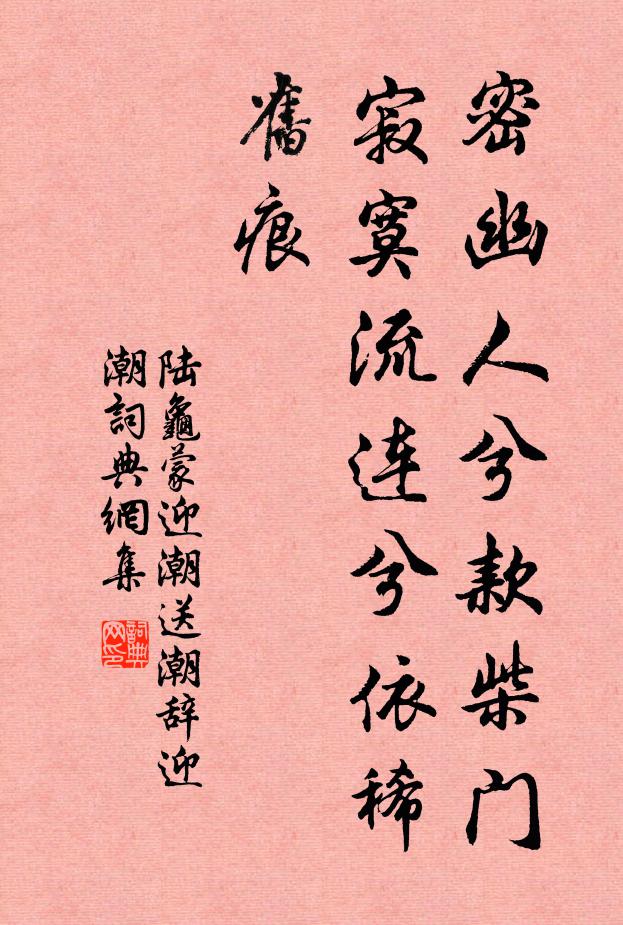 密幽人兮款柴门
寂寞流连兮依稀
舊痕
陆龜蒙迎潮送潮辞迎
潮詞典網集
詞典
网印